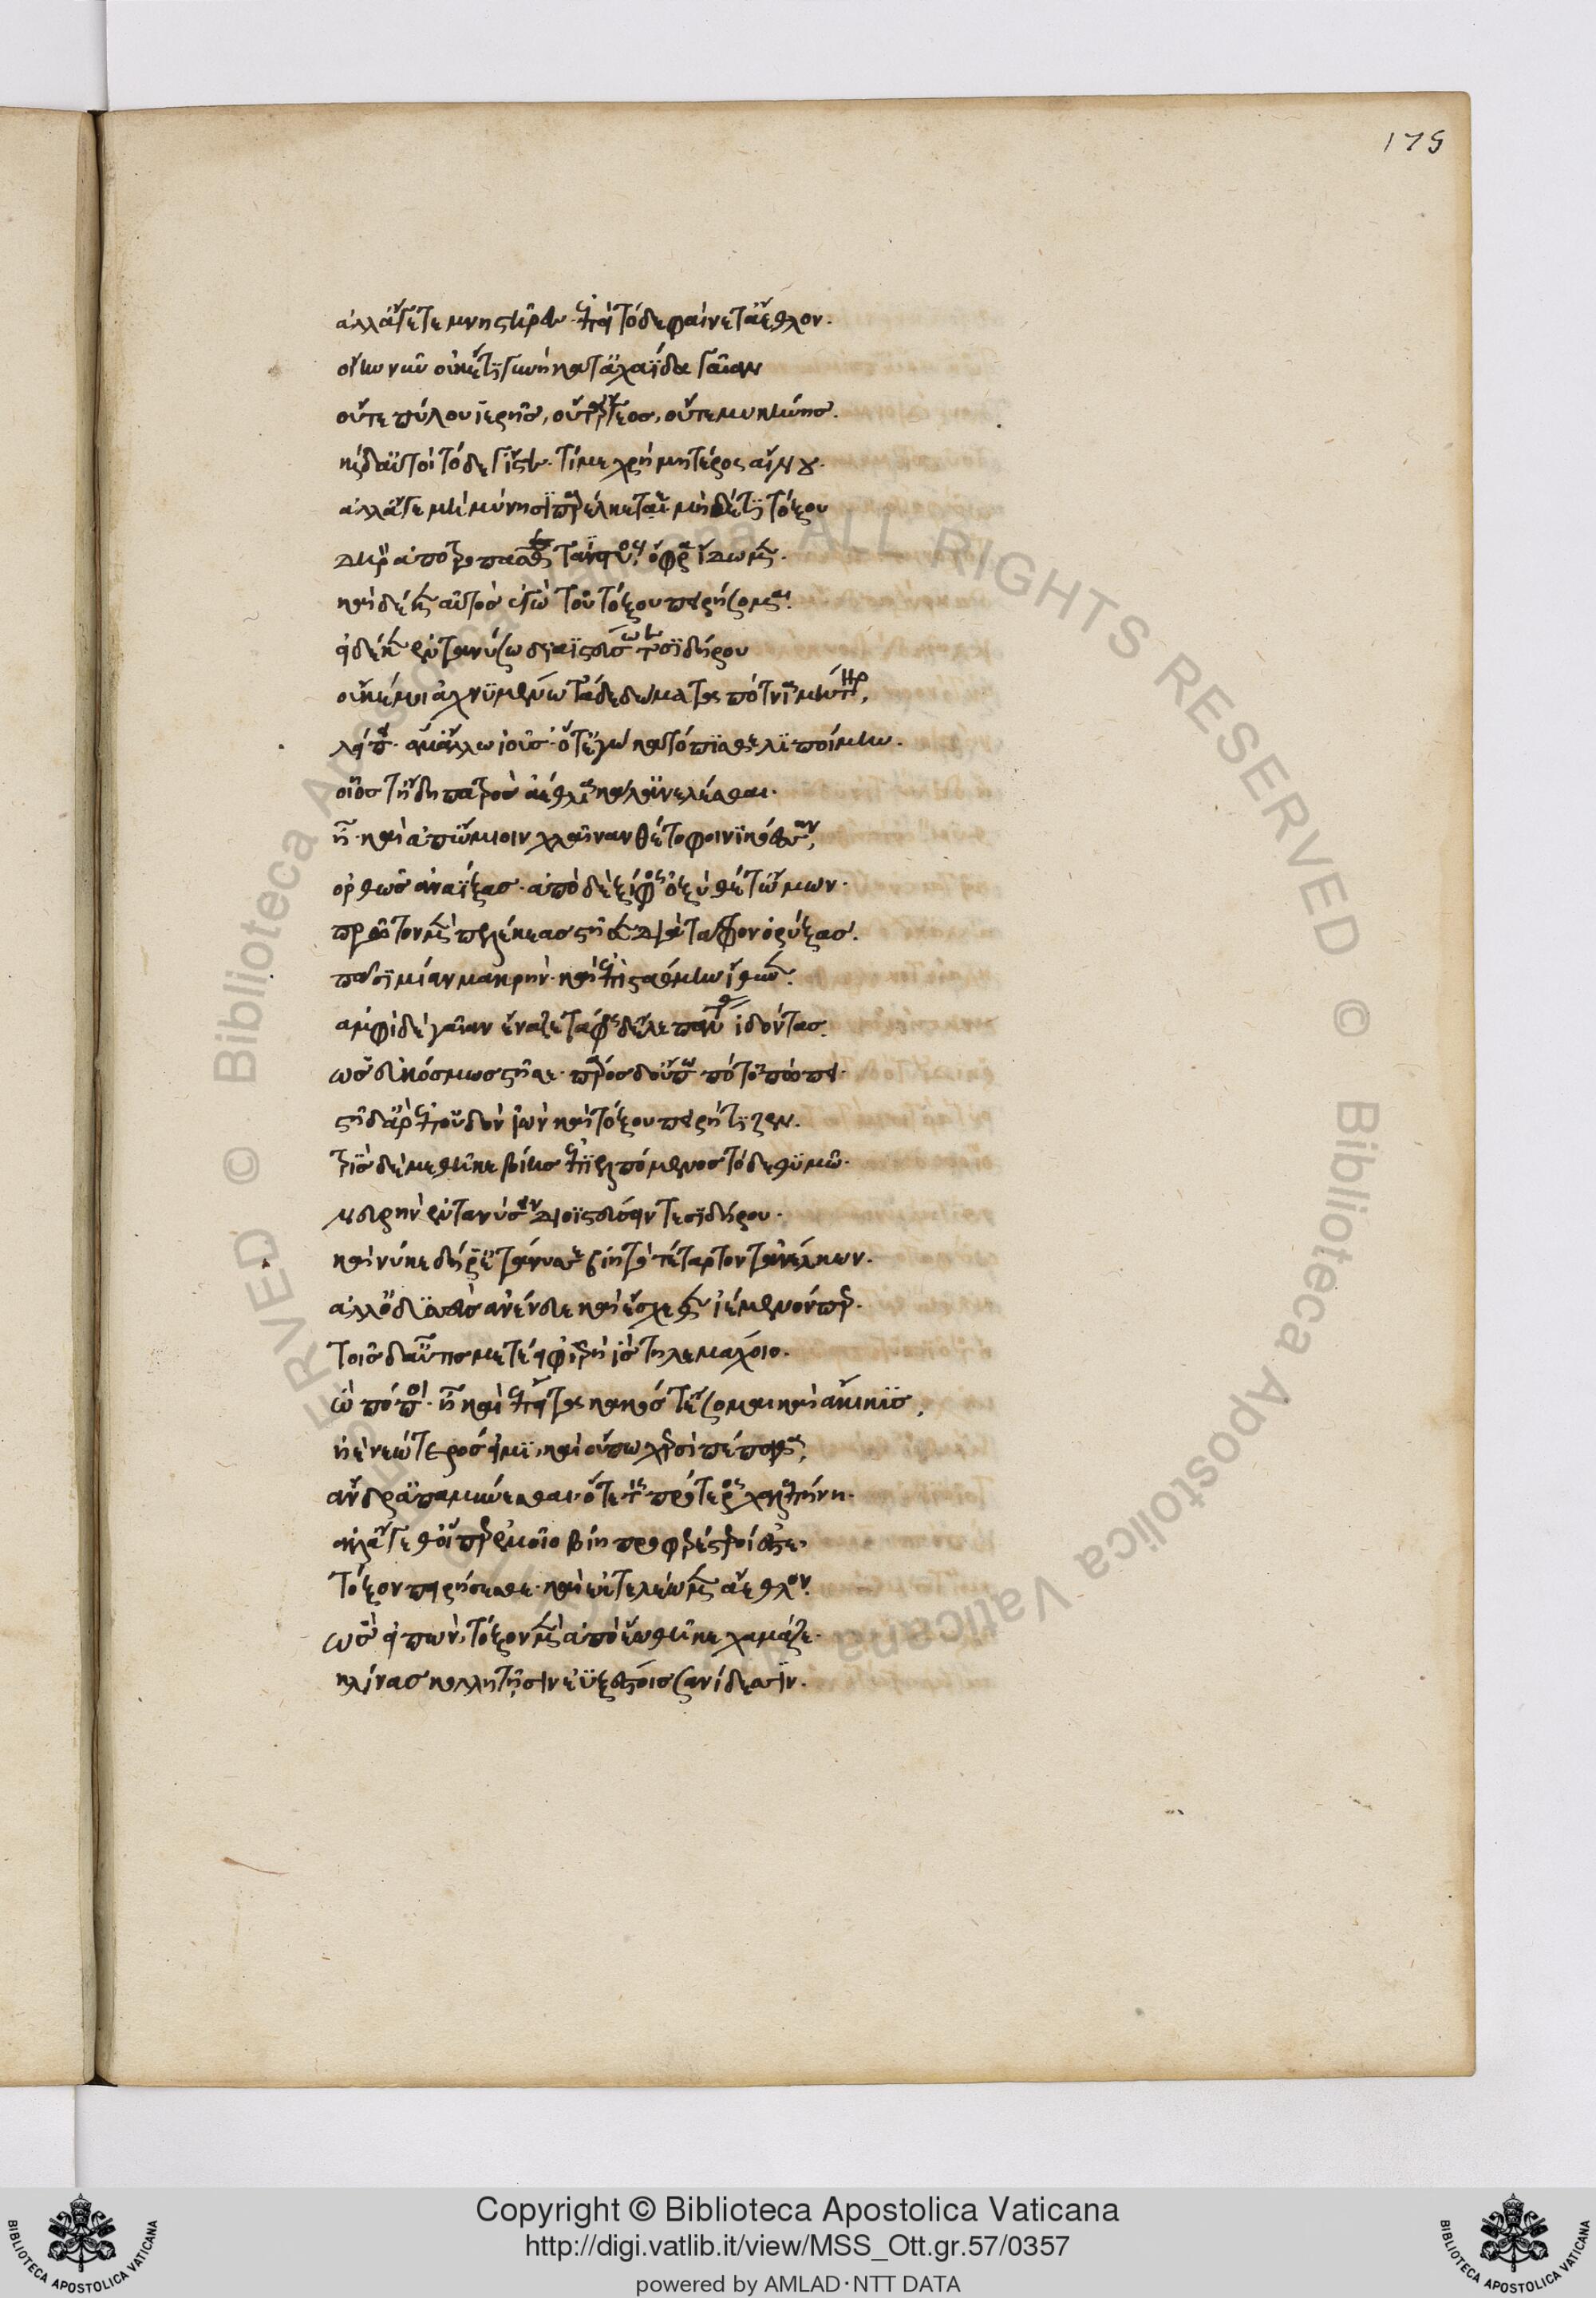 175
ἀλλ' ἄγετε μνηστῆρες· ἐπεὶ τόδε φαίνετ' ἄεθλον.
οἵη νῦν οὐκ ἔστι γυνὴ κατ' ἀχαΐδα γαῖαν
οὔτε πύλου ἱερῆς, οὔτ' ἄργεος, οὔτε μυκήνης.
καὶ δ' αὐτοὶ τόδε γ' ἴστε· τί με χρὴ μητέρος αἴνου·
ἀλλ' ἄγε μὴ μύνῃσι παρέλκετε μὴδ' ἔτι τόξου
δηρὸν ἀποτρωπᾶσθε τανυστύος ὄφρα ἴδωμεν.
καὶ δέ κεν αὐτὸς ἐγὼ τοῦ τόξου πειρησαίμην.
εἰ δέ κεν ἐντανύσω διοϊστεύσω τε σιδήρου
οὔ κέ μοι ἀχνυμένω τάδε δώματα πότνια μήτηρ,
λείποι ἅμ' ἄλλω ἰοῦσ' ὅτ' ἐγὼ κατόπισθε λιποίμην.
οἷός τ' ἤδη πατρὸς ἀέθλια κάλ' ἀνελέσθαι.
ἦ καὶ ἀπ' ὤμοιιν χλαῖναν θέτο φοινικόεσσαν,
ὀρθὸς ἀναΐξας· ἀπὸ δὲ ξίφος ὀξὺ θέτ' ὤμων.
πρῶτον μὲν πελέκεας στῆσε διὰ τάφρον ὀρύξας.
πᾶσι μίαν μακρήν· καὶ ἐπὶ στάθμην ἴθυνεν.
ἀμφὶ δὲ γαῖαν ἔναξε τάφος δ' ἕλε πάντας ἰδόντας
ὡς εὐκόσμως στῆσε· πάρος δ' οὔπω ποτ' ὀπώπει.
στῆ δ' ἄρ' ἐπ' οὐδὸν ἰὼν καὶ τόξου πειρήτιζεν.
τρὶς δὲ μεθῆκε βίης ἐπιελπόμενος τόδε θυμῶ.
νευρὴν ἐντανύσειν διοϊστεύσειν τε σιδήρου.
καί νύ κε δή ῥ' ἐτάνυσε βίη τὸ τέταρτον ἀνέλκων.
ἀλλ' ὀδυσεὺς ἀνένευε καὶ ἔσχεθεν ἱέμενόν περ.
τοῖς δ' αὖτις μετέειφ' ἱερὴ ἲς τηλεμάχοιο.
ὢ πόποι· ἦ καὶ ἔπειτα κακός τ' ἔσομαι καὶ ἄκικυς,
ἠὲ νεώτερός εἰμι, καὶ οὔπω χερσὶ πέποιθα,
ἄνδρ' ἀπαμύνεσθαι ὅτε τις πρότερος χαλεπήνῃ.
ἀλλ' ἄγεθ' οἵ περ ἐμοῖο βίῃ προφερέστεροί ἐστε,
τόξου πειρήσασθε· καὶ ἐκτελέωμεν ἄεθλον.
ὣς εἰπὼν, τόξον μὲν ἀπὸ ἕω θῆκε χαμᾶζε.
κλίνας κολλητῇσιν ἐυξέστοις σανίδεσσιν.
Copyright © Biblioteca Apostolica Vaticana
http://digi.vatlib.it/view/MSS_Ott.gr.57/0357
powered by AMLAD·NTT DATA